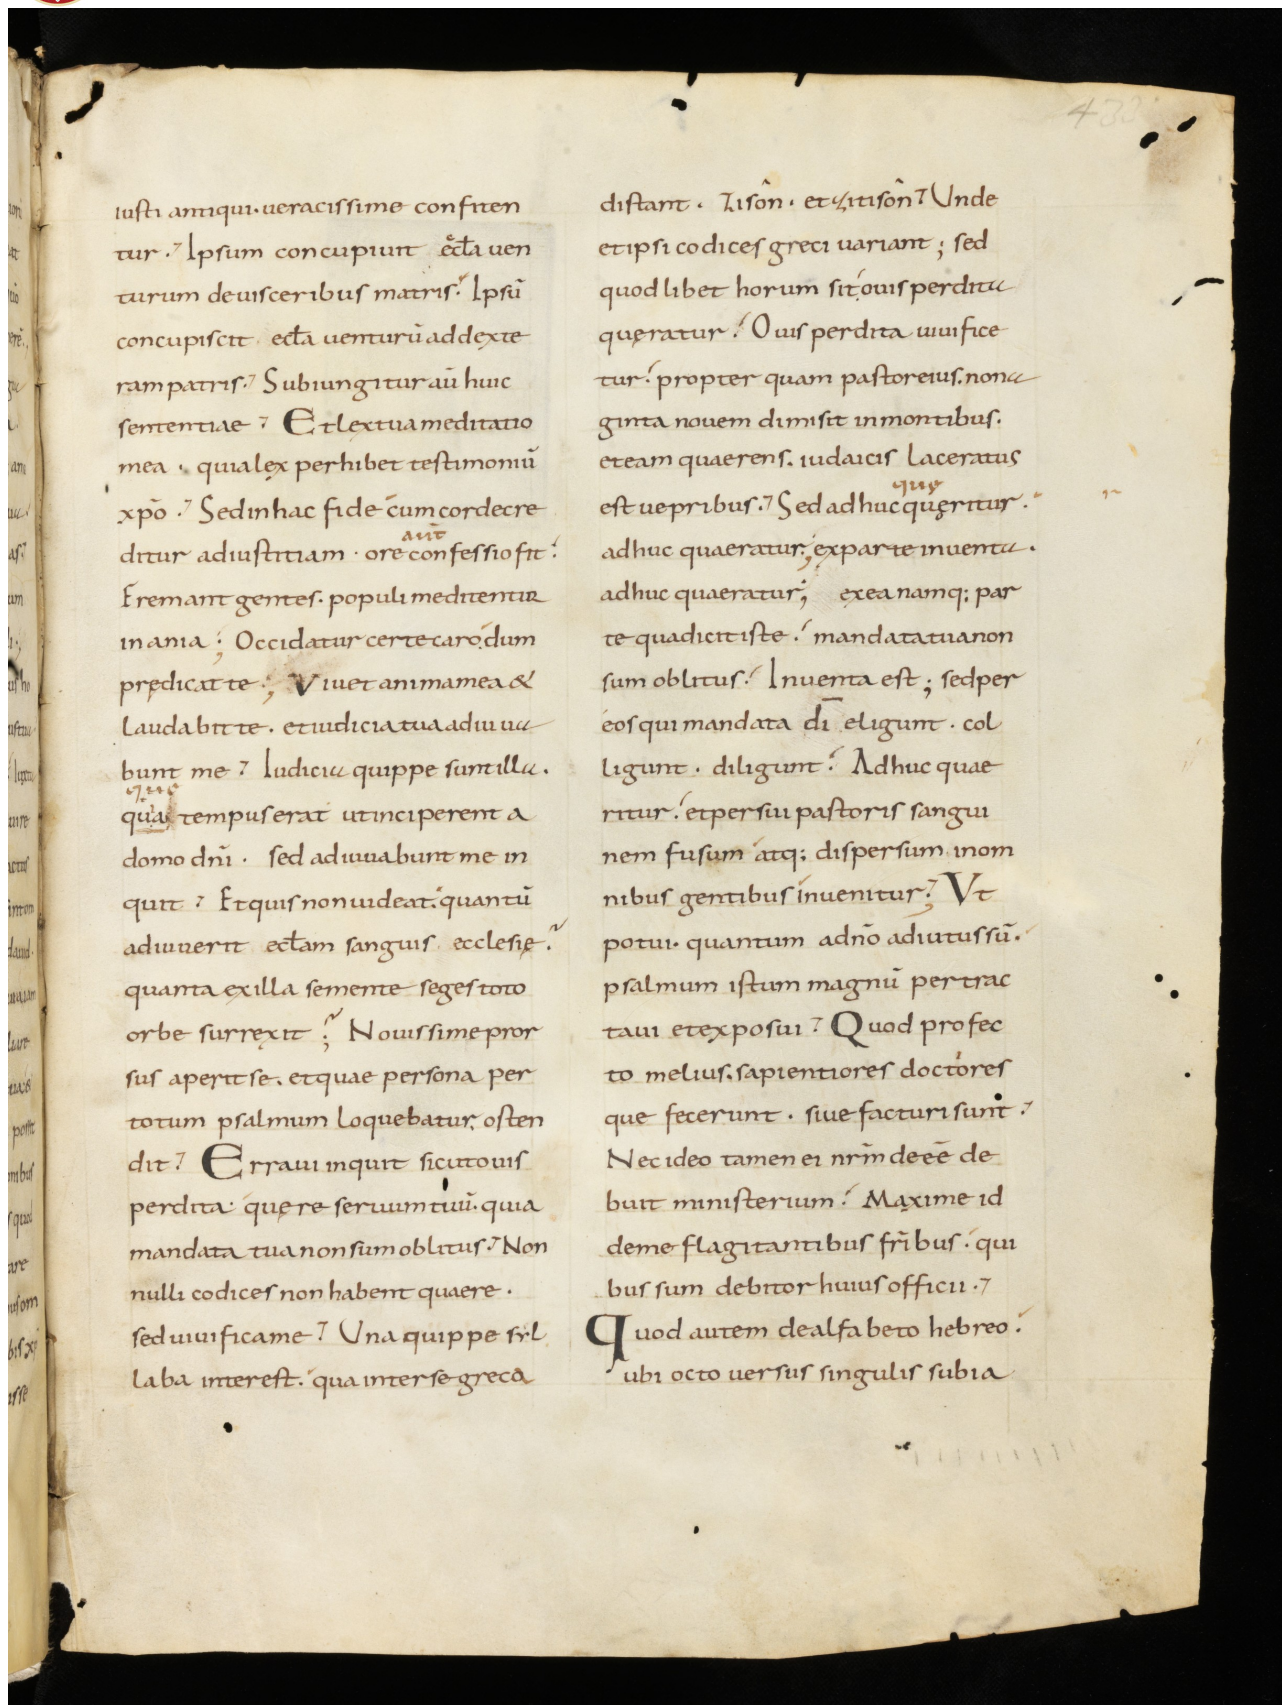 433
iusti antiqui. ueracissime confiten
tur. Ipsum concupiuit eccl̄a uen
turum deuisceribus matris. Ipsū
concupiscit eccl̄a uenturū addexte
ram patris. Subiungitur aū huic
sententiae. Et lex tua meditatio
mea. quia lex perhibet testimoniū
xp̄o. Sed in hac fide cum corde cre
ditur ad iustitiam. ore confessio fit.
aut
Fremant gentes. populi meditentur
inania; Occidatur certe caro. dum
prędicat te; Viuet anima mea &
laudabit te. et iudicia tua adiuua
bunt me. Iudicia quippe sunt illa.
quę
quae tempus erat ut inciperent a
domo dn̄i. sed adiuuabunt me in
quit. Et quis non uideat. quantū
adiuuerit eccl̄am sanguis ecclesię.
quanta ex illa semente seges toto
orbe surrexit; Nouissime pror
sus aperit se. et quae persona per
totum psalmum loquebatur, osten
dit. Erraui inquit sicut ouis
perdita. quęre seruum tuū. quia
mandata tua non sum oblitus. Non
nulli codices non habent quaere.
sed uiuifica me. Una quippe syl
laba interest. qua inter se greca
distant. Zison. et Zitison. Unde
et ipsi codices greci uariant; sed
quodlibet horum sit. ouis perdita
quęratur. Ouis perdita uiuifice
tur. propter quam pastor eius. nona
ginta nouem dimisit in montibus.
et eam quaerens. iudaicis laceratus
quę
est uepribus. Sed adhuc quęritur.
adhuc quaeratur; ex parte inuenta.
adhuc quaeratur; ex ea namq; par
te qua dicit iste. mandata tua non
sum oblitus. Inuenta est; sed per
eos qui mandata dī eligunt. col
ligunt. diligunt. Adhuc quae
ritur. et per sui pastoris sangui
nem fusum atq; dispersum in om
nibus gentibus inuenitur; Vt
potui. quantum a dn̄o adiutus sū.
psalmum istum magnū pertrac
taui et exposui. Quod profec
to melius. sapientiores doctores
que fecerunt. siue facturi sunt.
Nec ideo tamen ei nr̄m deeē de
buit ministerium. Maxime id
de me flagitantibus fr̄ibus. qui
bus sum debitor huius officii.
Quod autem de alfabeto hebreo.
ubi octo uersus singulis subia